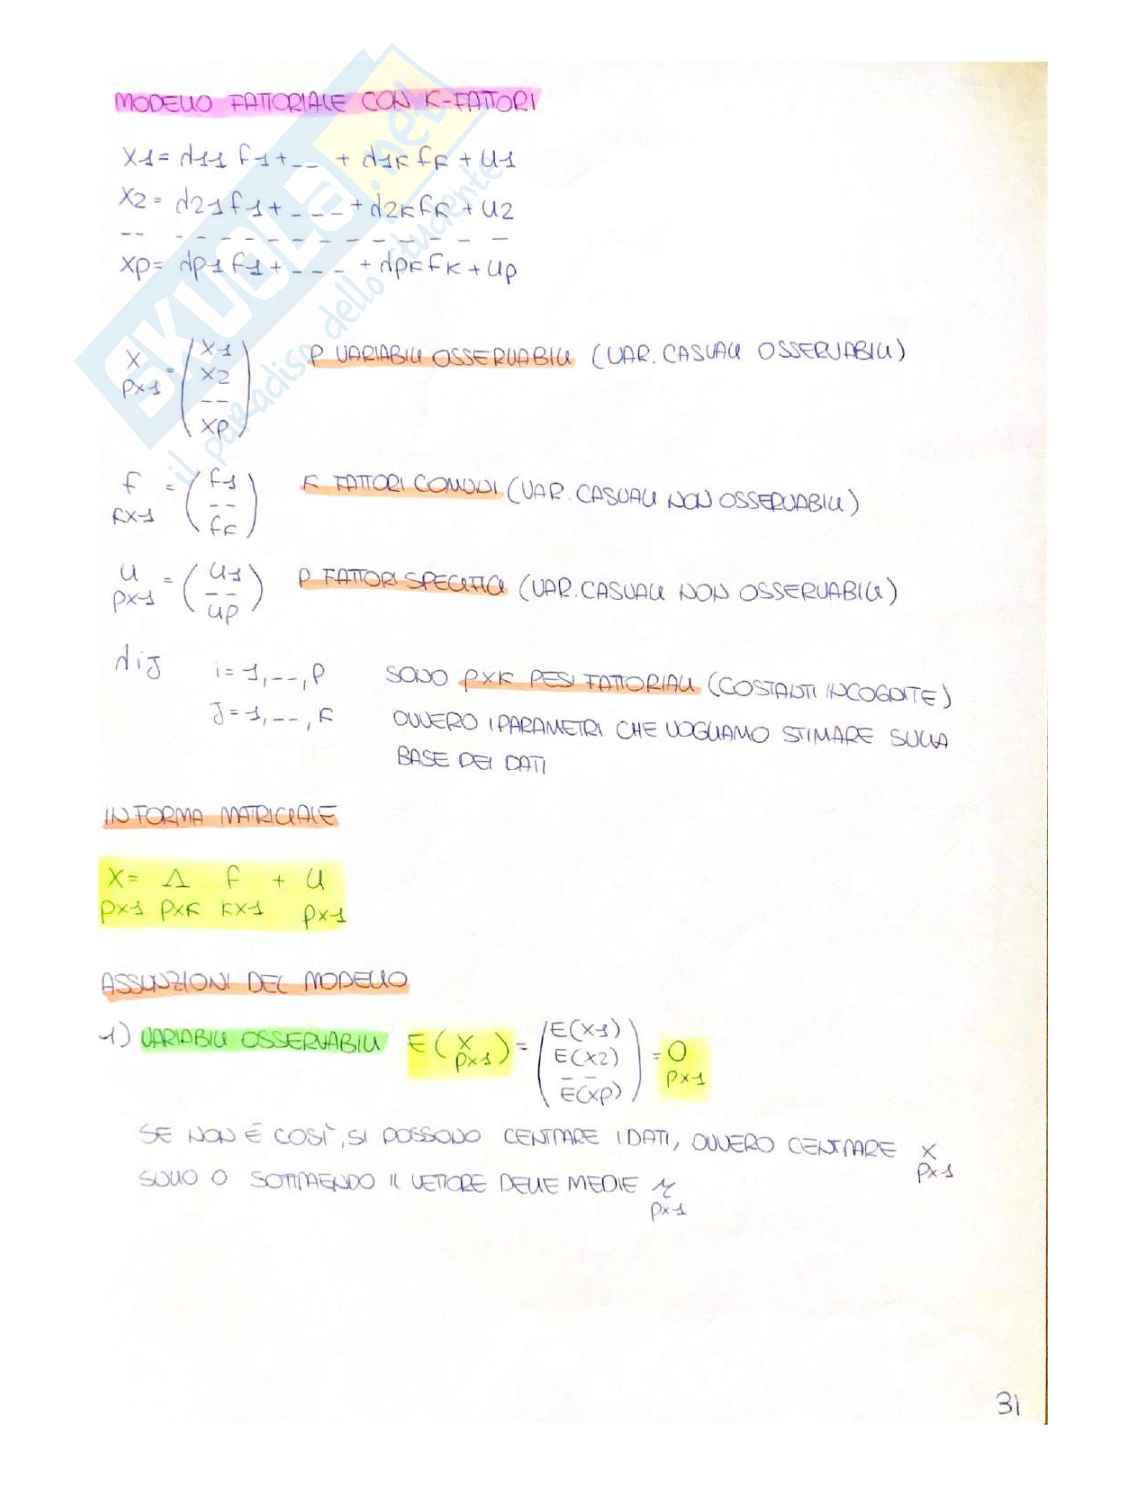 MODELLO FATTORIALE CON K-FATTORI
X1 = d11 f1 + -- + d1K fK + U1
X2 = d21 f1 + --- + d2K fK + U2
-- - - - - - - - - - -
XP = dP1 f1 + --- + dPK fK + UP
X PX1 = (X1 X2 -- XP) P VARIABILI OSSERVABILI (VAR. CASUALI OSSERVABILI)
f KX1 = (f1 -- fK) K FATTORI COMUNI (VAR. CASUALI NON OSSERVABILI)
U PX1 = (U1 -- UP) P FATTORI SPECIFICI (VAR. CASUALI NON OSSERVABILI)
diJ i = 1,--,P SONO PXK PESI FATTORIALI (COSTANTI INCOGNITE)
J = 1,--,K OVVERO I PARAMETRI CHE VOGLIAMO STIMARE SULLA
BASE DEI DATI
IN FORMA MATRICIALE
X = Λ f + U
PX1 PXK KX1 PX1
ASSUNZIONI DEL MODELLO
1) VARIABILI OSSERVABILI E(X PX1) = (E(X1) E(X2) -- E(XP)) = 0 PX1
SE NON È COSÌ, SI POSSONO CENTRARE I DATI, OVVERO CENTRARE X PX1
SULLO 0 SOTTRAENDO IL VETTORE DELLE MEDIE μ PX1
31
SKUOLA.net
il paradiso dello studente